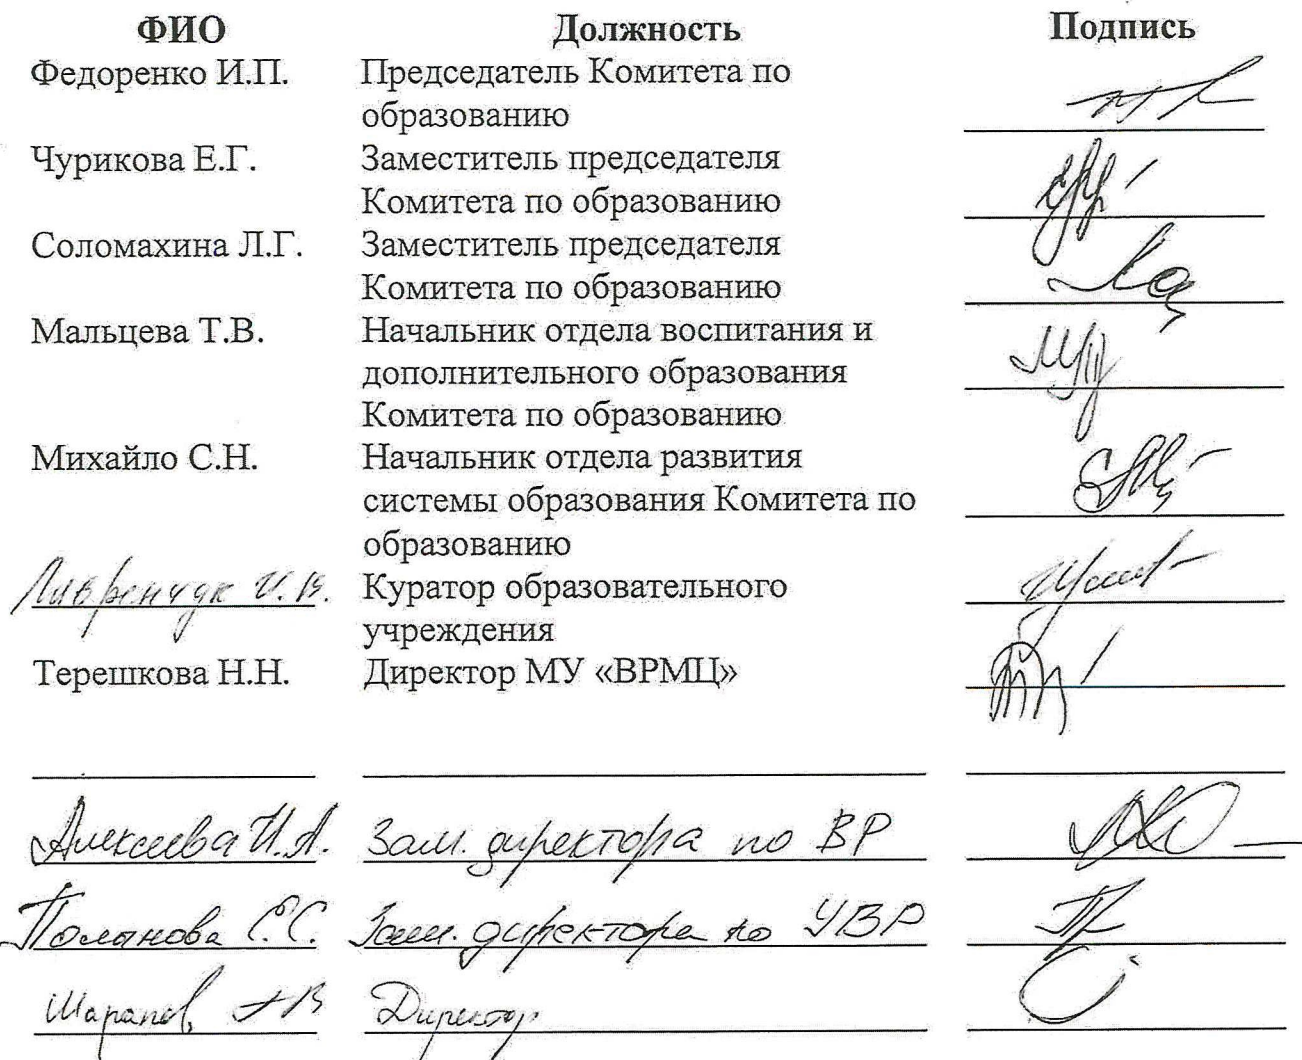 ФИО Должность Подпись
Федоренко И.П. Председатель Комитета по
образованию
Чурикова Е.Г. Заместитель председателя
Комитета по образованию
Соломахина Л.Г. Заместитель председателя
Комитета по образованию
Мальцева Т.В. Начальник отдела воспитания и
дополнительного образования
Комитета по образованию
Михайло С.Н. Начальник отдела развития
системы образования Комитета по
образованию
Лавренчук И.В. Куратор образовательного
учреждения
Терешкова Н.Н. Директор МУ «ВРМЦ»
Алексеева И.А. Зам. директора по ВР
Полынова Е.С. Зам. директора по УВР
Шарапов АВ Директор